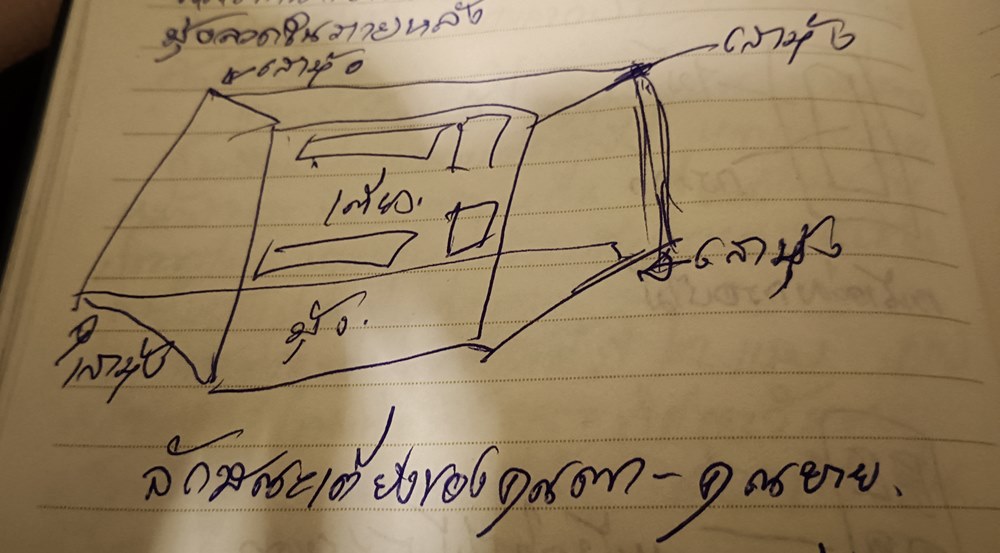 มุ้งลวดในภายหลัง
เสามุ้ง
เสามุ้ง
เตียง.
เสามุ้ง
มุ้ง.
เสามุ้ง
ลักษณะเตียงของคุณตา - คุณยาย.